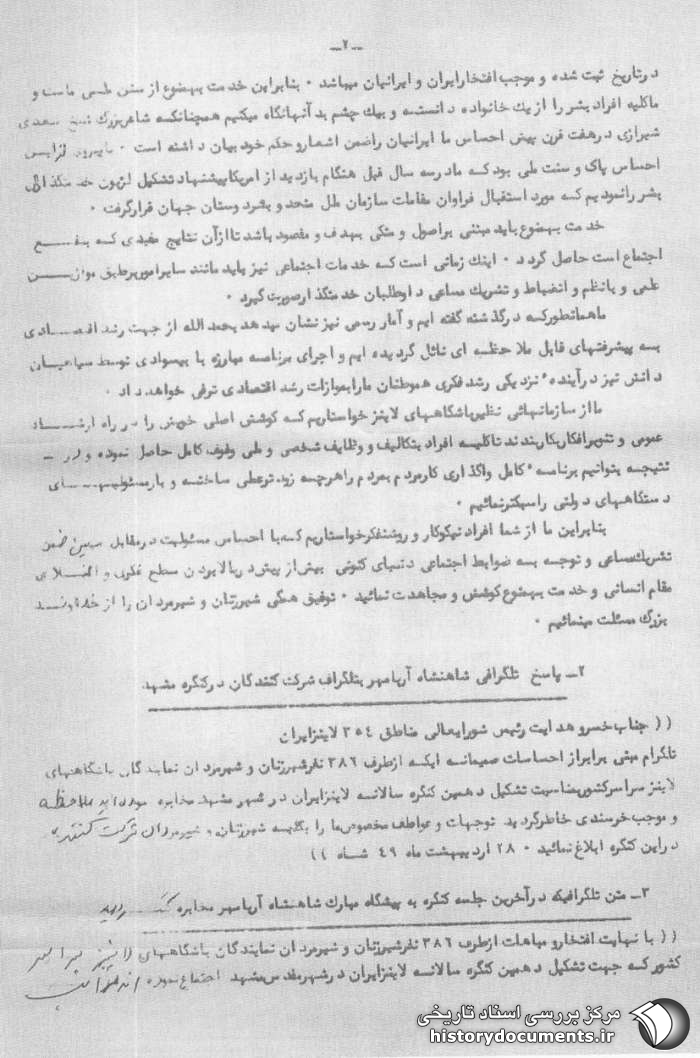 ـ۲ـ
درتاریخ ثبت شده و موجب افتخارایران و ایرانیان میباشد ۰ بنابراین خدمت بهمنوع از سنن ملی ماست و
ماکلیه افراد بشر را از یك خانواده دانسته و بیك چشم بدآنهانگاه میکنیم همچنانکسه شاعربزرگ شیخ سعدی
شیرازی درهفت قرن پیش احساس ما ایرانیان راضمن اشعار و حکم خود بیان داشته است ۰
احساس پاک و سنت ملی بود که مادرسه سال قبل هنگام بازدید از امریکاپیشنهاد تشکیل لژیون خدمتگذاران
بشر رانمودیم که مورد استقبال فراوان مقامات سازمان ملل متحد و بشردوستان جهان قرارگرفت ۰
خدمت بهمنوع باید مبتنی براصول و متکی بهدف و مقصود باشد تاازآن نتایج مفیدی که بنفــــع
اجتماع است حاصل گردد ۰ اینك زمانی است که خدمات اجتماعی نیز باید مانند سایرامور برطبق موازیــــن
علمی و بانظم و انضباط و تشریك مساعی داوطلبان خدمتگذارصورت گیرد ۰
ماهمانطورکه درگذشته گفته ایم و آمار رسمی نیز نشان میدهد بحمدالله از جهت رشد اقتصــادی
بسه پیشرفتهای قابل ملاحظه ای نائل گردیده ایم و اجرای برنامه مبارزه با بیسوادی توسط سپاهیـان
دانش نیز درآینده ٔ نزدیکی رشد فکری هموطنان مارابموازات رشد اقتصادی ترقی خواهد داد ۰
مااز سازمانهائی نظیرباشگاههای لاینز خواستاریم که کوشش اصلی خویش را در راه ارشــاد
عمومی و تنویرافکاربکاربندند تاکلیسه افراد بتکالیف و وظایف شخصی و ملی وقوف کامل حاصل نموده و در ـ
نتیجه بتوانیم برنامه ٔ کامل واگذاری کارمردم بمردم راهرچه زودترعملی ساخته و بارمسئولیتهــــای
دستگاههای دولتی راسبکترنمائیم ۰
بنابراین ما از شما افراد نیکوکار و روشنفکرخواستاریم که با احساس مسئولیت درمقابل میهن ضمن
تشریك مساعی و توجه بسه ضوابط اجتماعی دنیای کنونی بیش از پیش دربالابردن سطح فکری و اعتــلای
مقام انسانی و خدمت بهمنوع کوشش و مجاهدت نمائید ۰ توفیق همگی شیرزنان و شیرمردان را از خداونــد
بزرگ مسئلت مینمائیم ۰
۲ـ پاسخ تلگرافی شاهنشاه آریامهر بتلگراف شرکت کنندگان درکنگره مشهد
(( جناب خسرو هدایت رئیس شورایعالی مناطق ۳۵۴ لاینزایران
تلگرام مبنی برابراز احساسات صمیمانه ایکه ازطرف ۳۸۶ نفرشیرزنان و شیرمردان نمایندگان باشگاههای
لاینز سراسرکشوربمناسبت تشکیل دهمین کنگره سالانه لاینزایران در شهر مشهد مخابره نموده اید ملاحظه
و موجب خرسندی خاطرگردید توجهات و عواطف مخصوص ما را بکلیه شیرزنان و شیرمردان شرکت کننده
دراین کنگره ابلاغ نمائید ۰ ۲۸ اردیبهشت ماه ۴۹ شــاه ))
۳ـ متن تلگرافیکه درآخرین جلسه کنگره به پیشگاه مبارك شاهنشاه آریامهر مخابره گــردید
(( با نهایت افتخارو مباهات ازطرف ۳۸۶ نفرشیرزنان و شیرمردان نمایندگان باشگاههای لاینز سراسر
کشورکه جهت تشکیل دهمین کنگره سالانه لاینزایران درشهرمقدس مشهد اجتماع نموده اند
مرکز بررسی اسناد تاریخی
historydocuments.ir